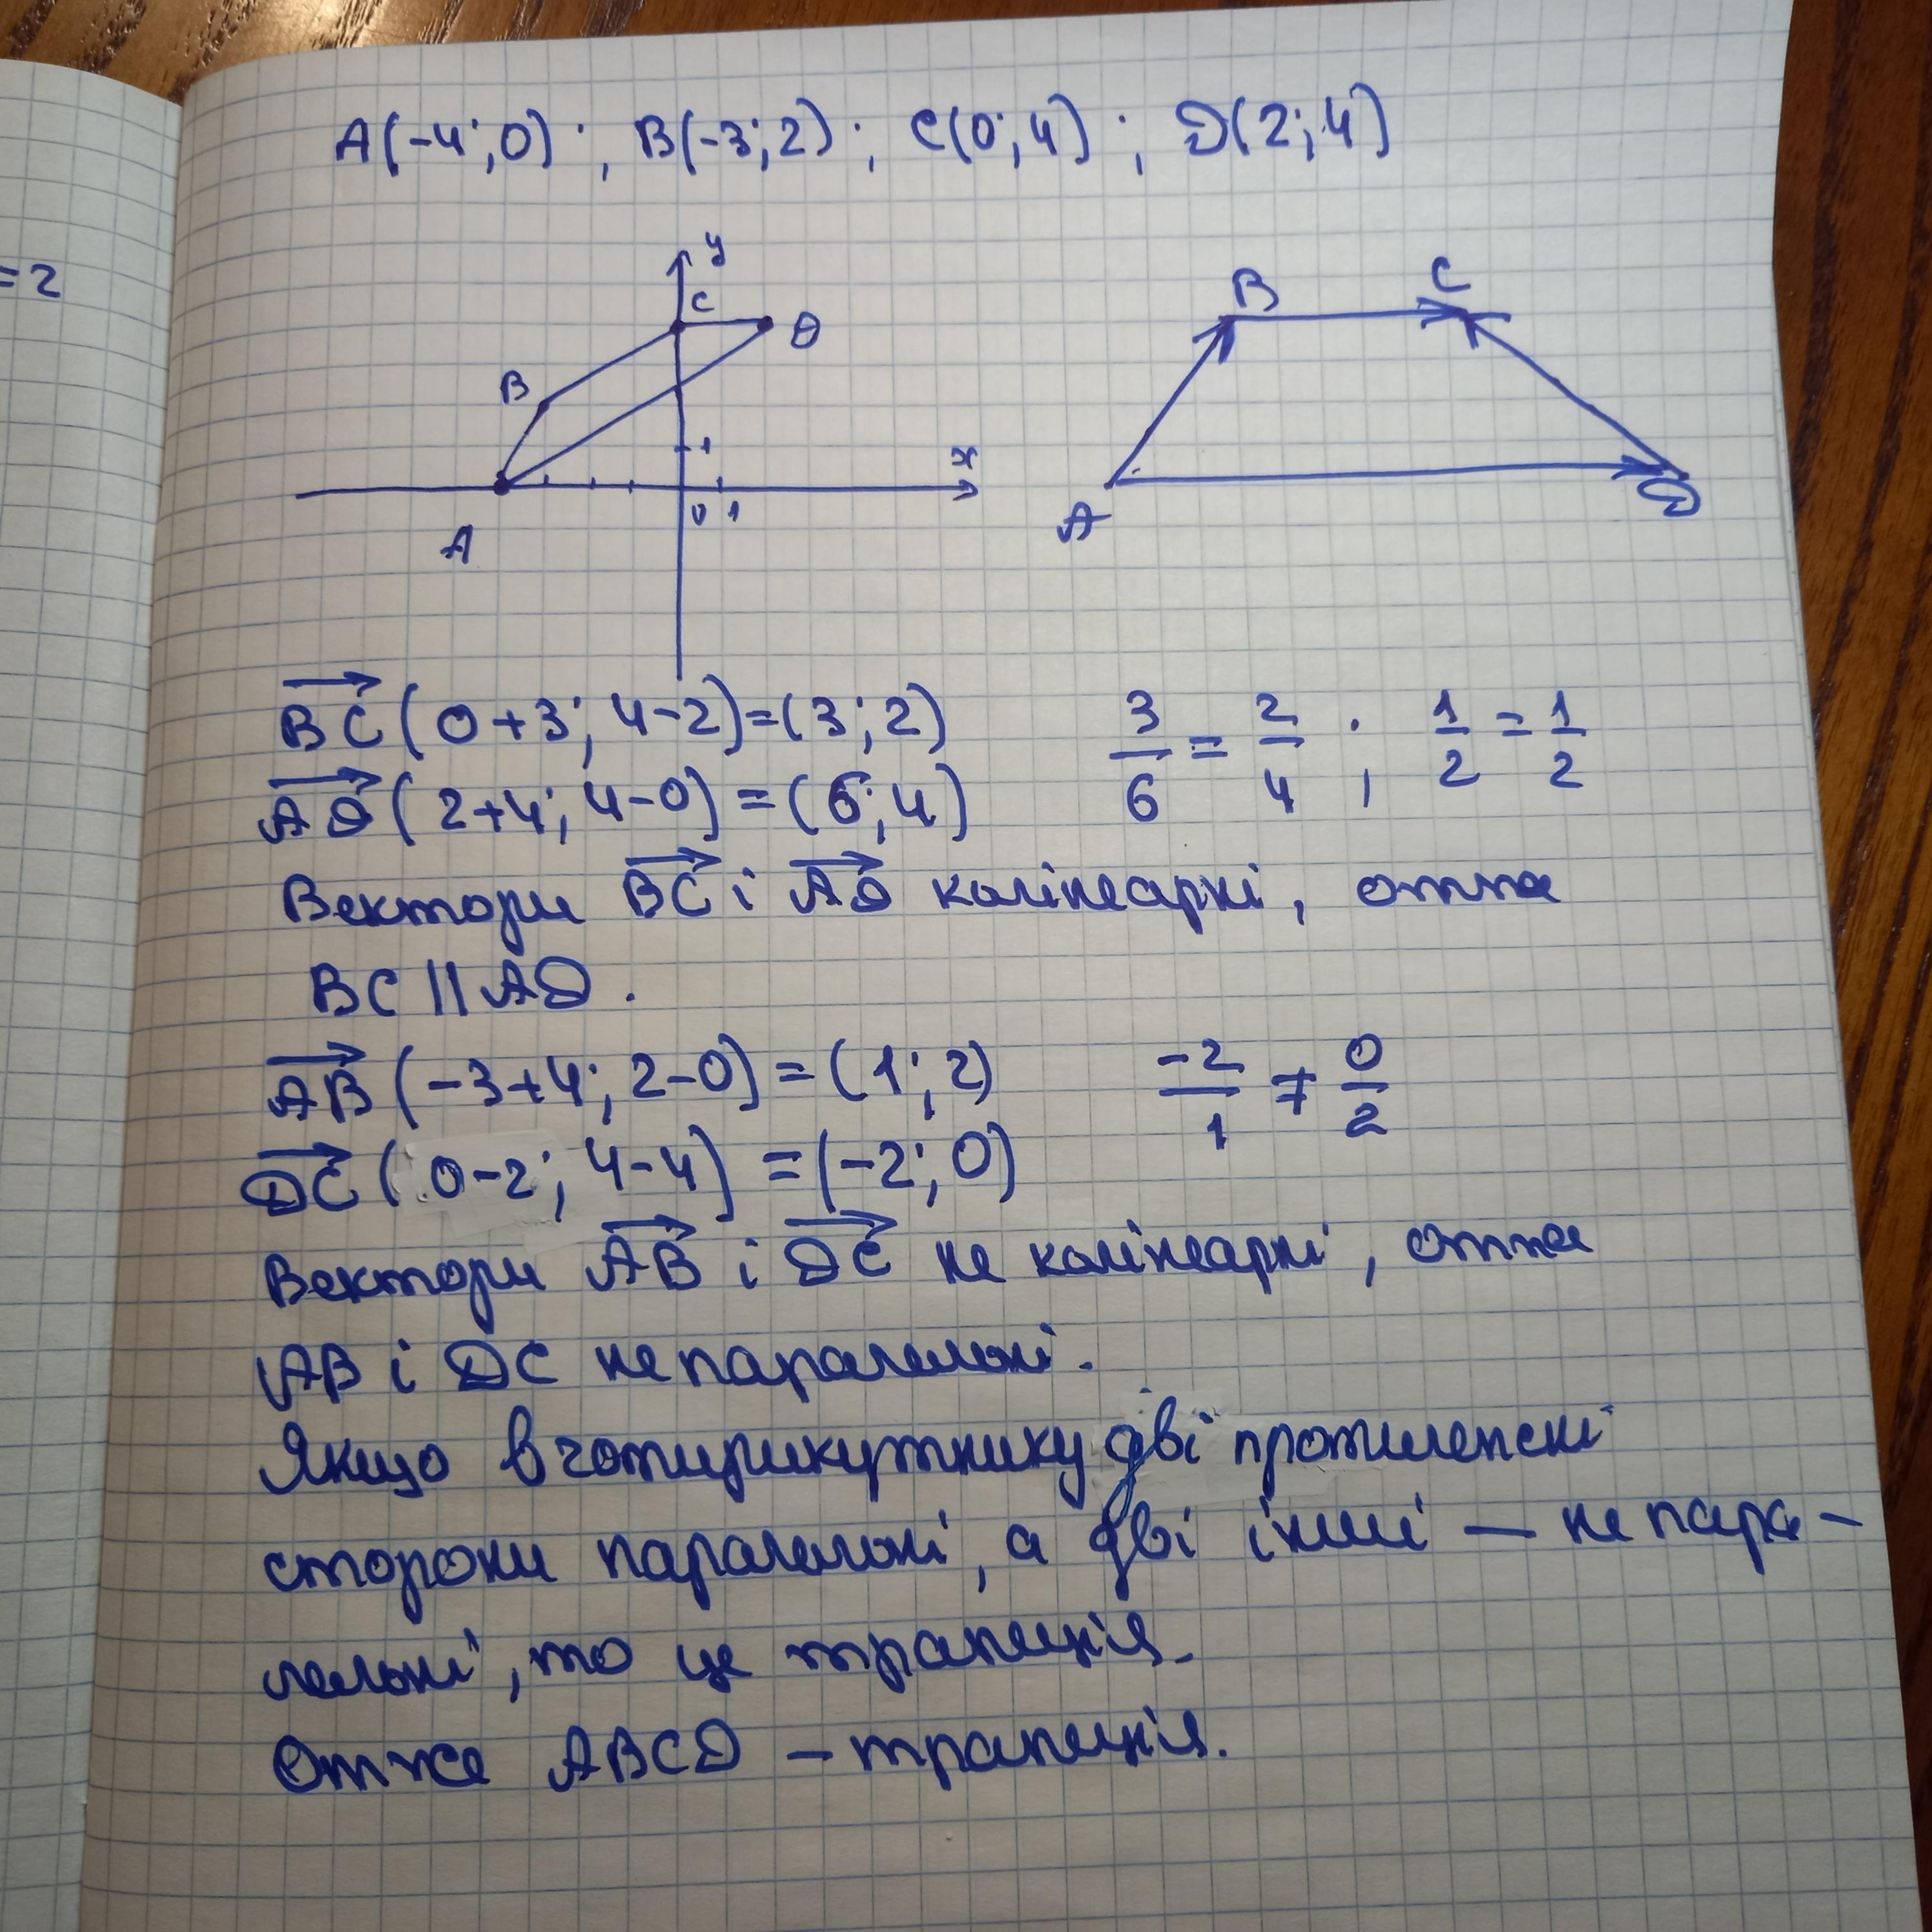 A(-4;0); B(-3;2); C(0;4); D(2;4)
=2
y
C
D
B
1
x
0 1
A
B
C
A
D
BC(0+3; 4-2)=(3;2)
3/6 = 2/4; 1/2 = 1/2
AD(2+4; 4-0)=(6;4)
Вектори BC і AD колінеарні, отже
BC || AD.
AB(-3+4; 2-0)=(1;2)
-2/1 ≠ 0/2
DC(0-2; 4-4)=(-2;0)
Вектори AB і DC не колінеарні, отже
AB і DC не паралельні.
Якщо в чотирикутнику дві протилежні
сторони паралельні, а дві інші – не пара-
лельні, то це трапеція.
Отже ABCD – трапеція.